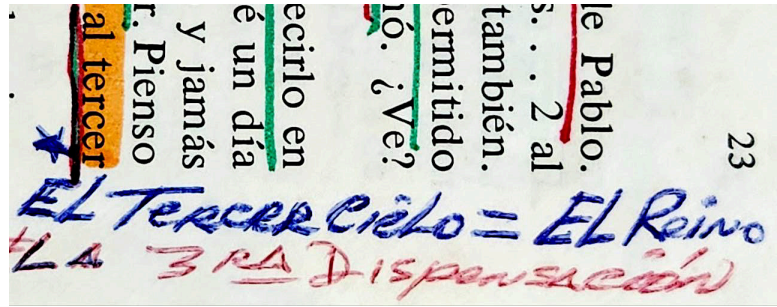 23
le Pablo.
s. . . 2 al
también.
ermitido
ó. ¿Ve?
ecirlo en
é un día
y jamás
r. Pienso
al tercer
EL TERCER CIELO = EL REINO
LA 3RA DISPENSACIÓN